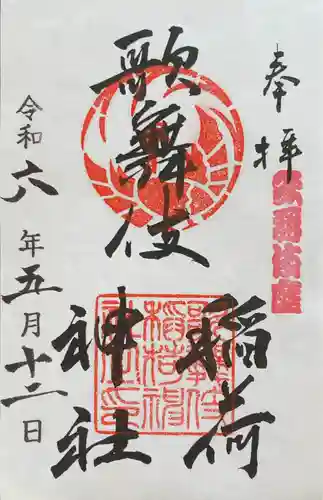 奉拝
歌舞伎座
歌舞伎
稲荷
神社
令和六年五月十二日